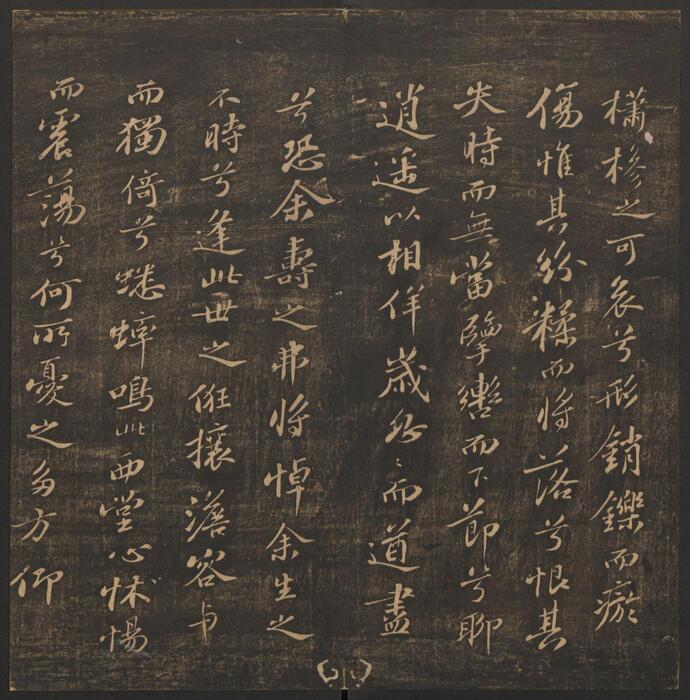 櫹槮之可哀兮形銷鑠而瘀
傷惟其紛糅而將落兮恨其
失時而無當擥轡而下節兮聊
逍遙以相佯歲忽〻而遒盡
兮恐余壽之弗將悼余生之
不時兮逢此世之俇攘澹容與
而獨倚兮蟋蟀鳴此西堂心怵惕
而震蕩兮何所憂之多方仰